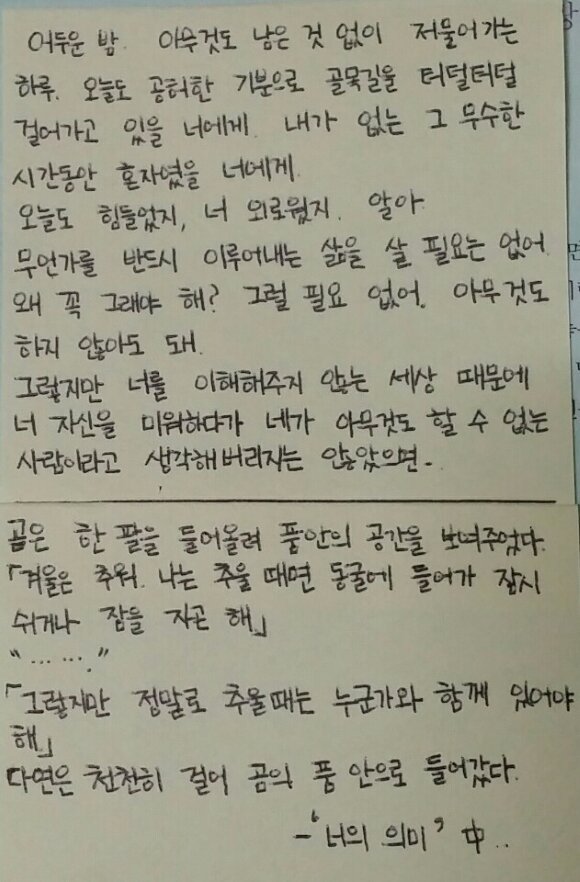 어두운 밤. 아무것도 남은 것 없이 저물어가는
하루. 오늘도 공허한 기분으로 골목길을 터덜터덜
걸어가고 있을 너에게. 내가 없는 그 무수한
시간동안 혼자였을 너에게.
오늘도 힘들었지, 너 외로웠지. 알아.
무언가를 반드시 이루어내는 삶을 살 필요는 없어.
왜 꼭 그래야 해? 그럴 필요 없어. 아무것도
하지 않아도 돼.
그렇지만 너를 이해해주지 않는 세상 때문에
너 자신을 미워하다가 네가 아무것도 할 수 없는
사람이라고 생각해버리지는 않았으면-
곰은 한 팔을 들어올려 품안의 공간을 보여주었다.
「겨울은 추워. 나는 추울 때면 동굴에 들어가 잠시
쉬거나 잠을 자곤 해」
"……."
「그렇지만 정말로 추울때는 누군가와 함께 있어야
해」
다연은 천천히 걸어 곰의 품 안으로 들어갔다.
-'너의 의미' 中..